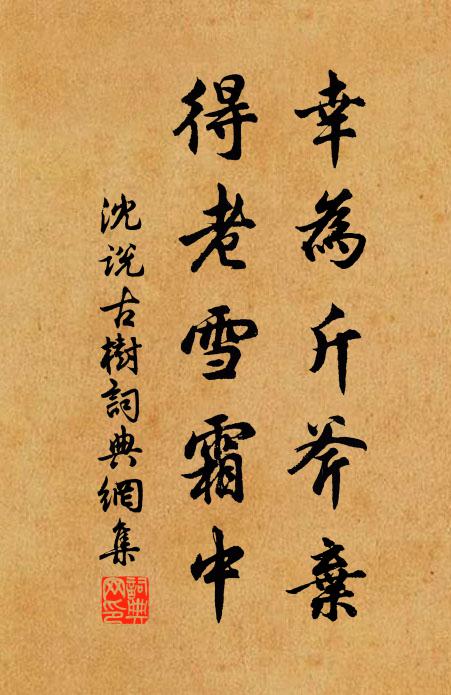 幸為斤斧棄
得老雪霜中
沈説古樹詞典網集
詞典网印